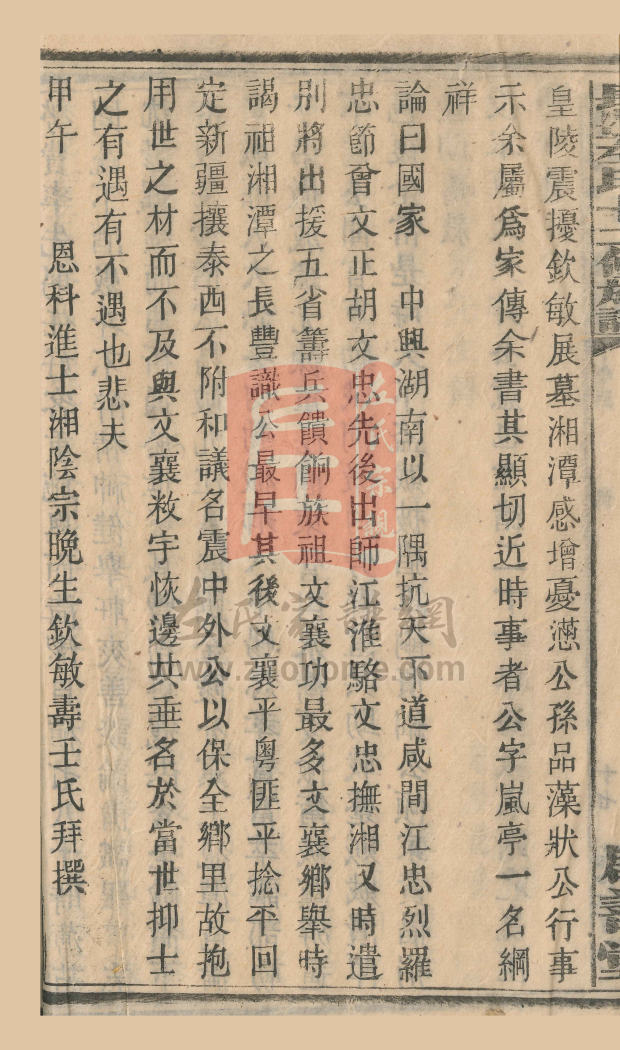 皇陵震擾欽敏展墓湘潭感增憂懣公孫品藻狀公行事
示余屬爲家傳余書其顯切近時事者公字嵐亭一名綱
祥
論曰國家　中興湖南以一隅抗天下道咸間江忠烈羅
忠節曾文正胡文忠先後出師江淮駱文忠撫湘又時遣
別將出援五省籌兵饋餉族祖文襄功最多文襄鄉舉時
謁祖湘潭之長豐識公最早其後文襄平粵匪平捻平回
定新疆攘泰西不附和議名震中外公以保全鄉里故抱
用世之材而不及與文襄敉宇恢邊共垂名於當世抑士
之有遇有不遇也悲夫
甲午　恩科進士湘陰宗晚生欽敏壽壬氏拜撰
左氏宗親
左氏家譜網